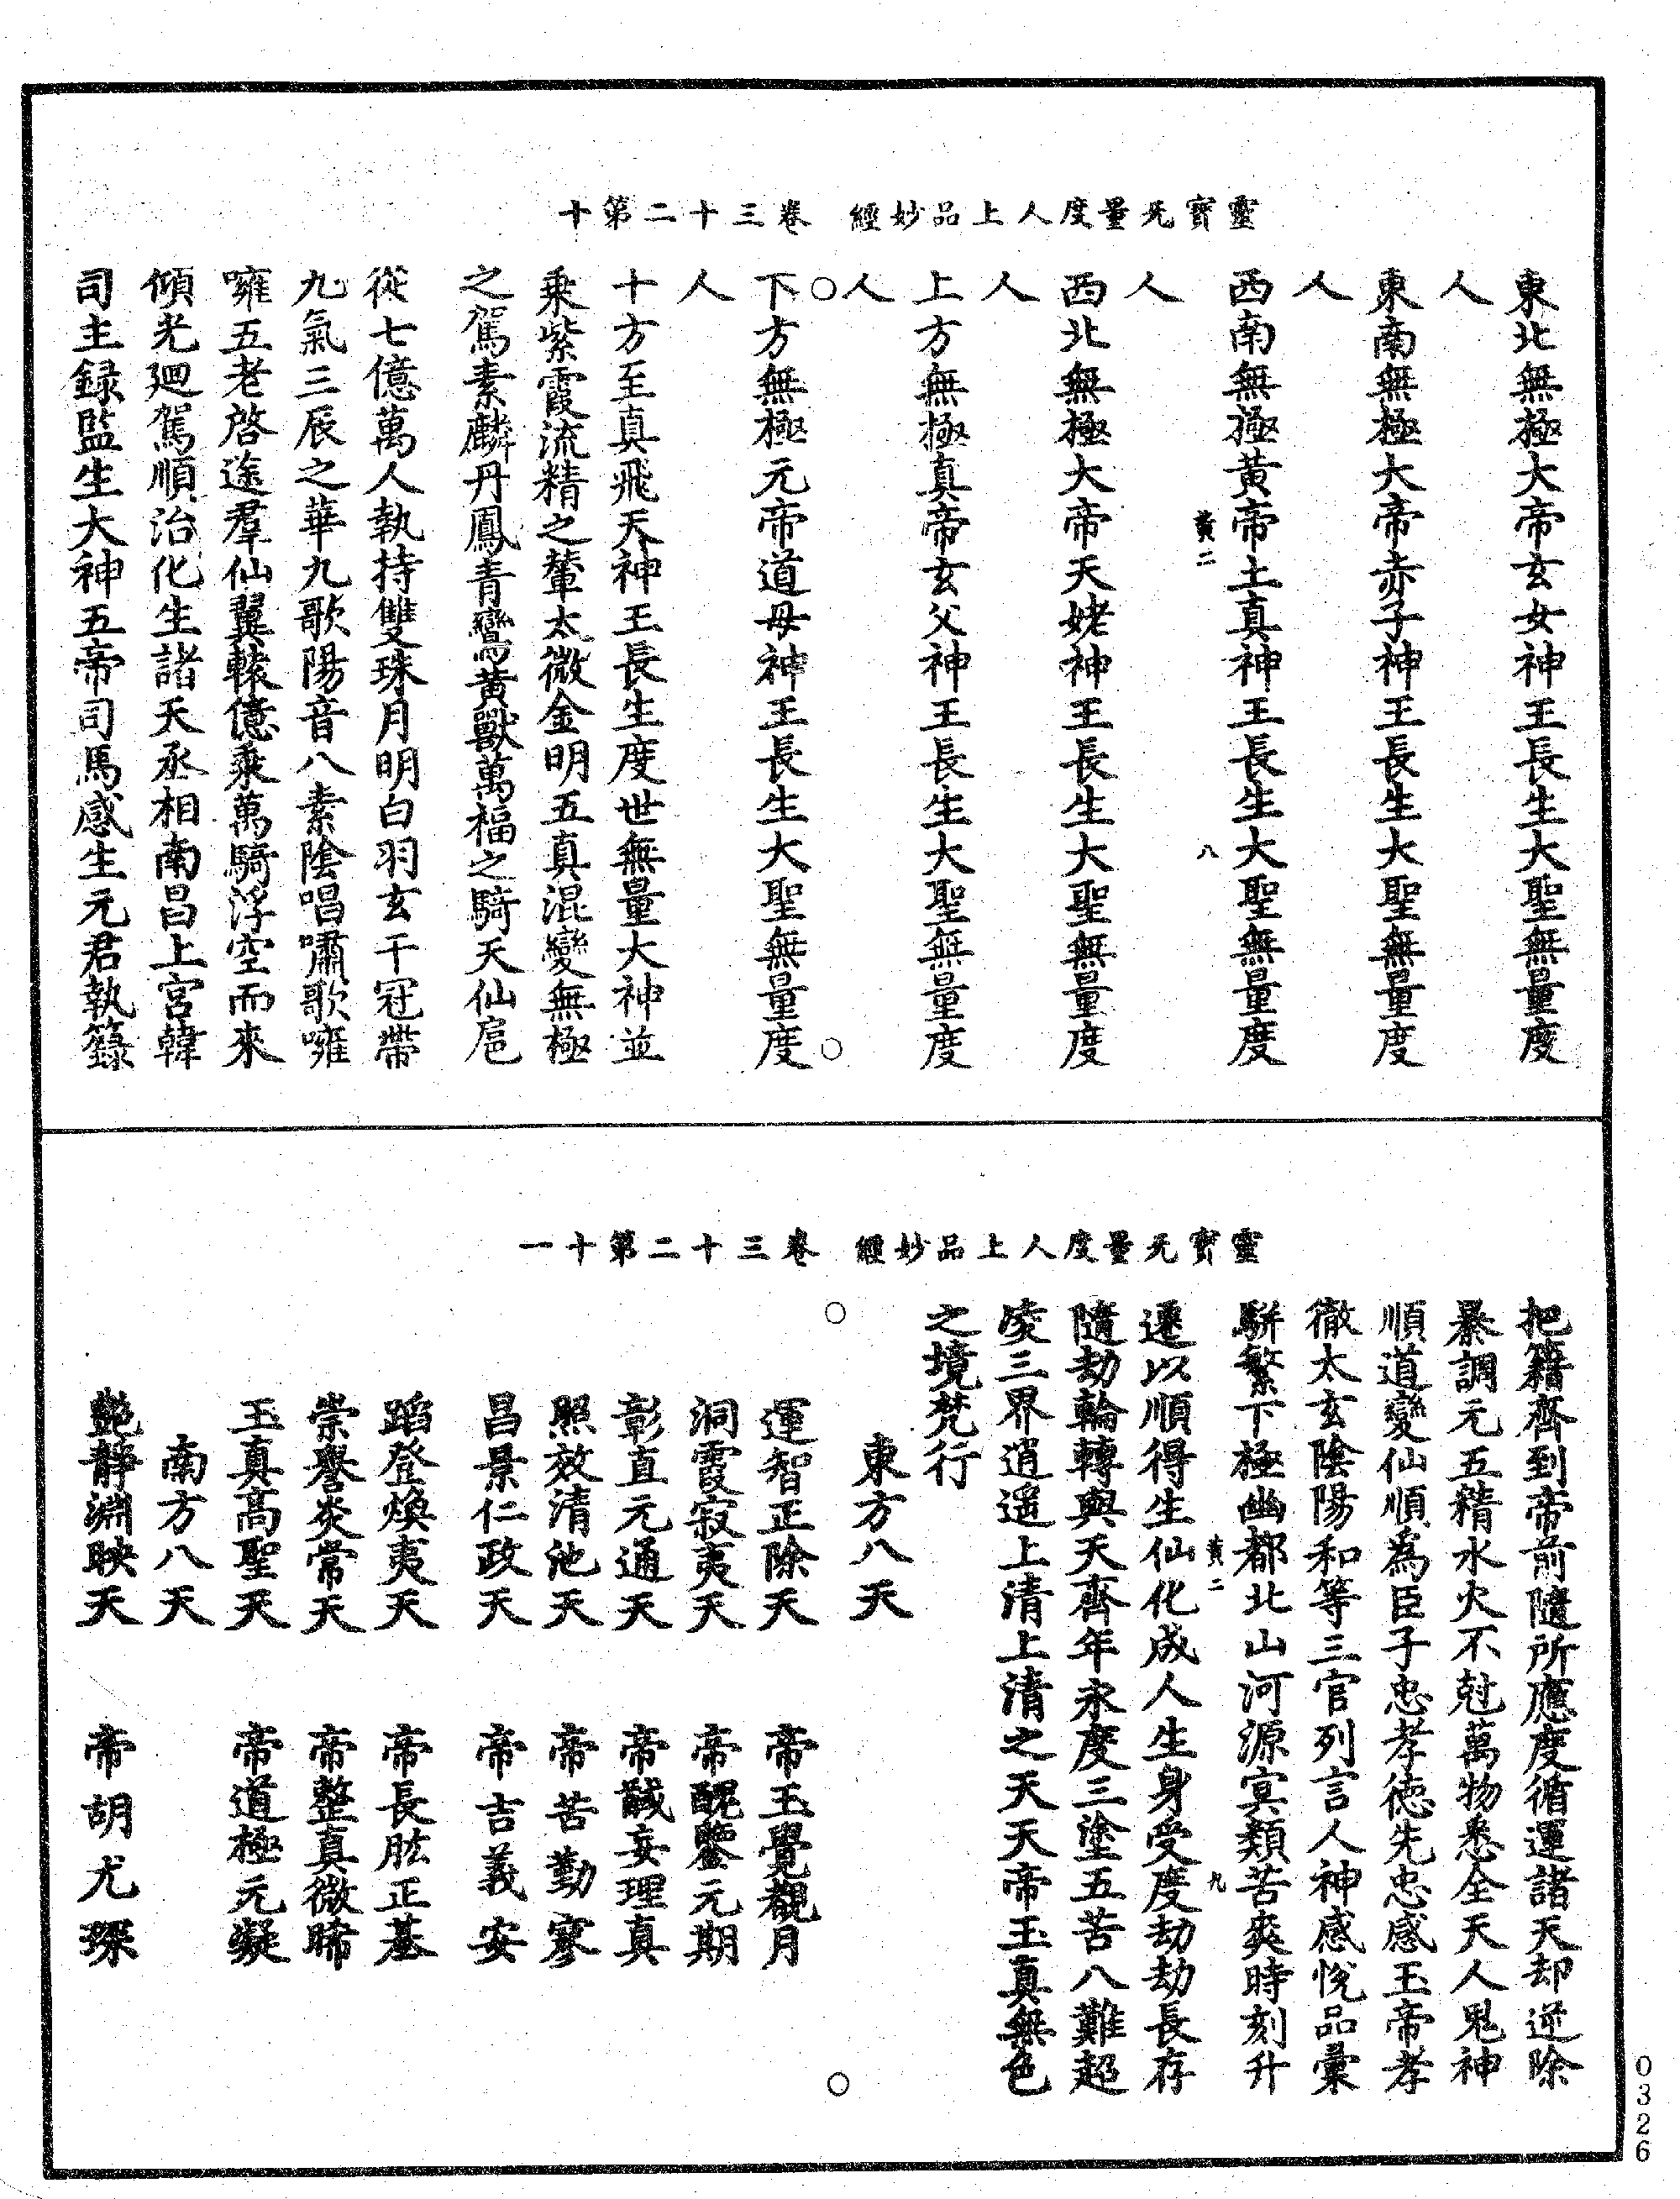 靈寳无量度人上品妙經　卷三十二第十
東北無極大帝玄女神王長生大聖無量度
人
東南無極大帝赤子神王長生大聖無量度
人
西南無極黃帝土真神王長生大聖無量度
黃二　八
人
西北無極大帝天姥神王長生大聖無量度
人
上方無極真帝玄父神王長生大聖無量度
人
下方無極元帝道母神王長生大聖無量度
人
十方至真飛天神王長生度世無量大神並
乗紫霞流精之輦太微金明五真混變無極
之駕素麟丹鳳青鸞黃獸萬福之騎天仙扈
從七億萬人執持雙珠月明白羽玄干冠帶
九氣三辰之華九歌陽音八素陰唱嘯歌嗈
嗈五老啓途羣仙翼轅億乘萬騎浮空而來
傾光廻駕順治化生諸天丞相南昌上宮韓
司主録監生大神五帝司馬感生元君執籙
靈寳无量度人上品妙經　卷三十二第十一
把籍齊到帝前隨所應度循運諸天却逆除
暴調元五精水火不尅萬物悉全天人鬼神
順道變仙順為臣子忠孝徳先忠感玉帝孝
徹太玄陰陽和等三官列言人神感悅品彙
駢繁下極幽都北山河源冥類苦爽時刻升
黃二　九
遷以順得生仙化成人生身受度劫劫長存
隨劫輪轉與天齊年永度三塗五苦八難超
凌三界逍遥上清上清之天天帝玉真無色
之境梵行
東方八天
運智正除天　帝玉覺觀月
洞霞寂夷天　帝醜鑒元期
彰直元通天　帝誠妄理真
照效清池天　帝苦勤寥
昌景仁政天　帝吉義安
蹈登煥夷天　帝長肱正基
崇譽炎常天　帝整真微晞
玉真高聖天　帝道極元凝
南方八天
艶靜淵映天　帝胡尤琛
0326